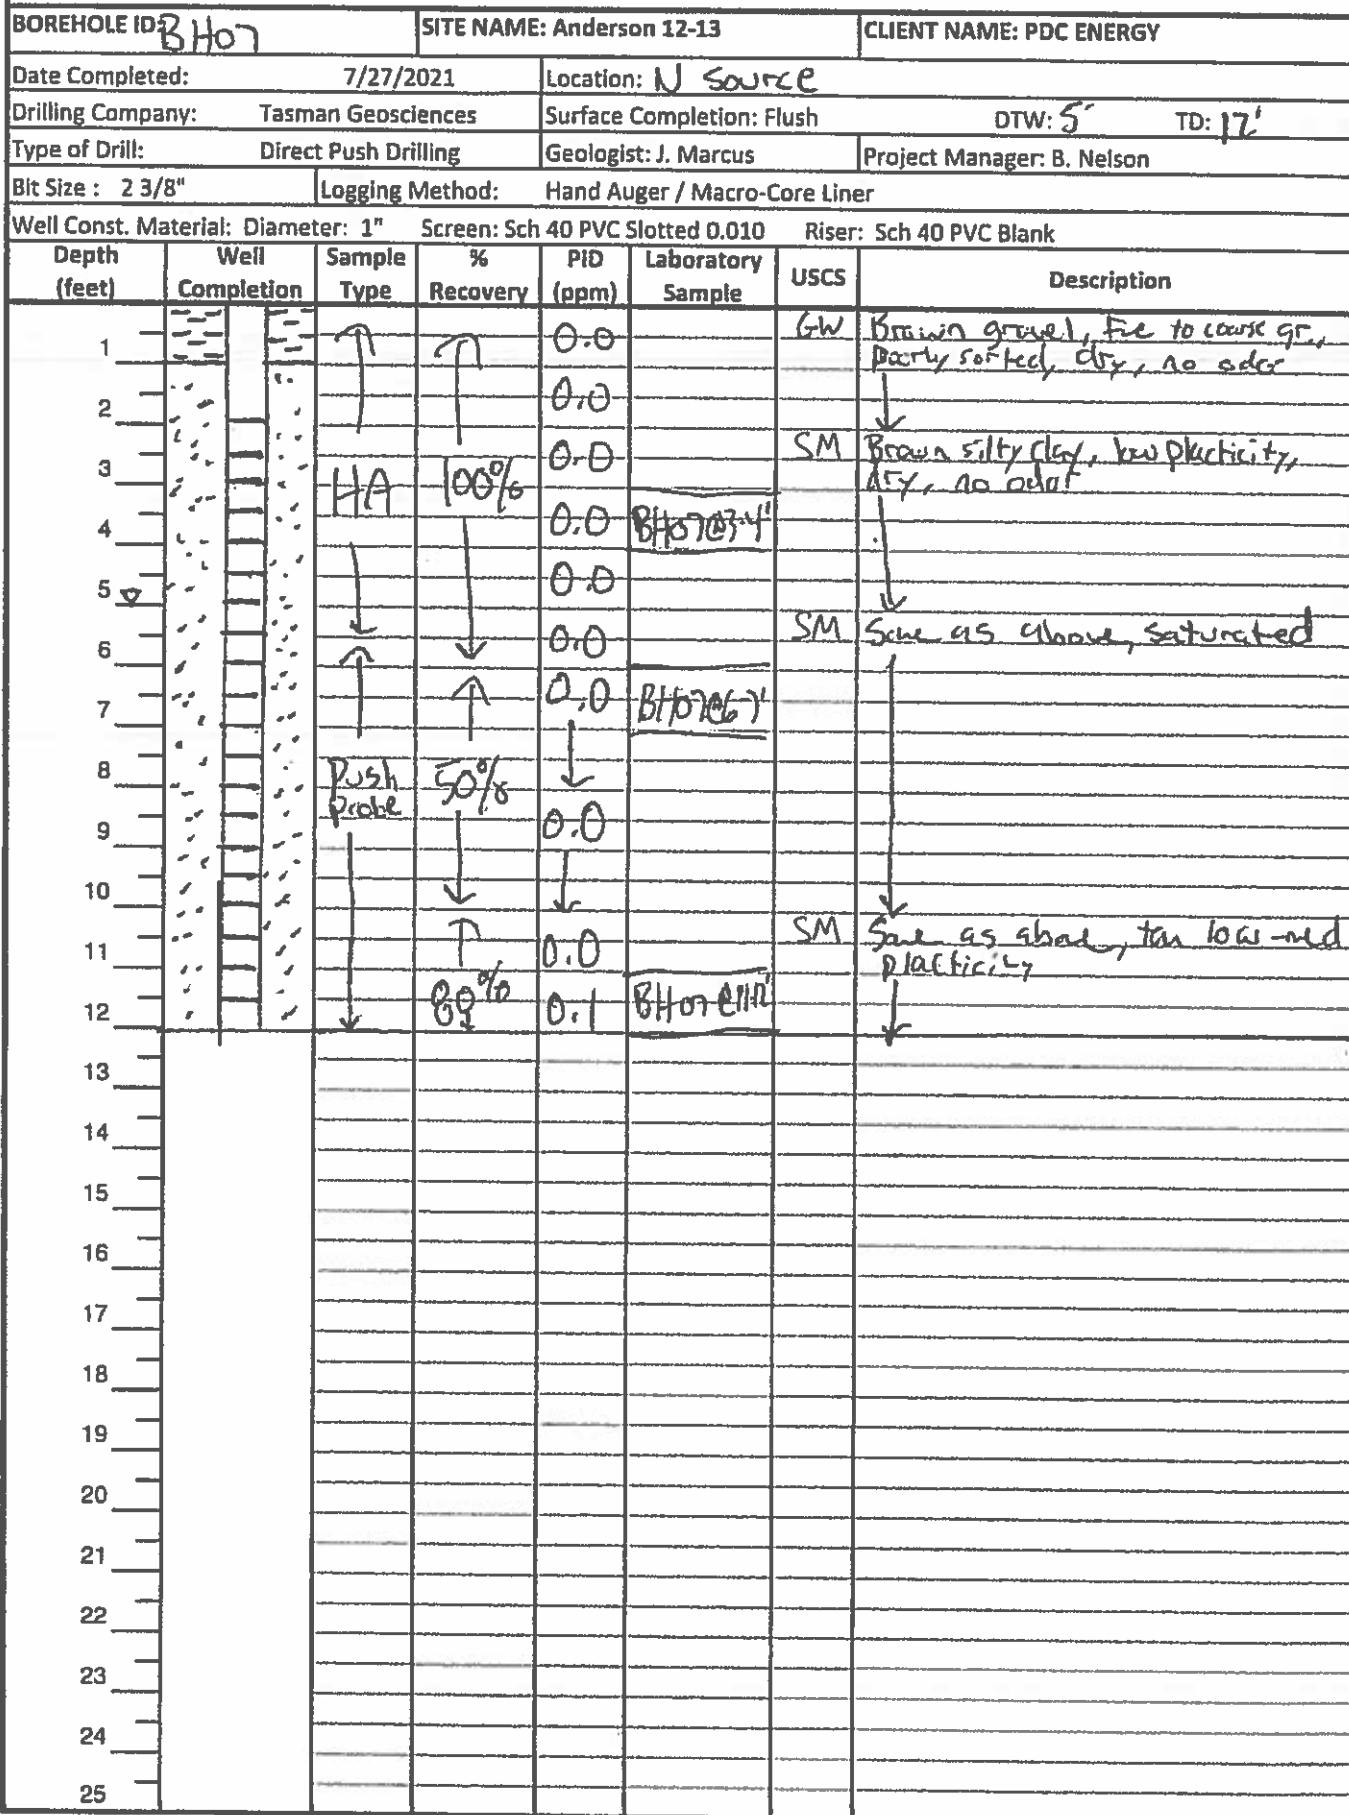 BOREHOLE ID: BH07 SITE NAME: Anderson 12-13 CLIENT NAME: PDC ENERGY
Date Completed: 7/27/2021 Location: N Source
Drilling Company: Tasman Geosciences Surface Completion: Flush DTW: 5' TD: 12'
Type of Drill: Direct Push Drilling Geologist: J. Marcus Project Manager: B. Nelson
Bit Size : 2 3/8" Logging Method: Hand Auger / Macro-Core Liner
Well Const. Material: Diameter: 1" Screen: Sch 40 PVC Slotted 0.010 Riser: Sch 40 PVC Blank
Depth (feet) Well Completion Sample Type % Recovery PID (ppm) Laboratory Sample USCS Description
0.0 GW Brown gravel, fine to coarse gr.,
1 poorly sorted, dry, no odor
0.0
2
0.0 SM Brown silty clay, low placticity,
3 HA 100% dry, no odor
0.0 BH07@3-4'
4
0.0
5
0.0 SM Same as above, saturated
6
0.0 BH07@6-7'
7
8 Push 50%
Probe
0.0
9
10
0.0 SM Same as above, tan low-med
11 placticity
80% 0.1 BH07@11-12'
12
13
14
15
16
17
18
19
20
21
22
23
24
25